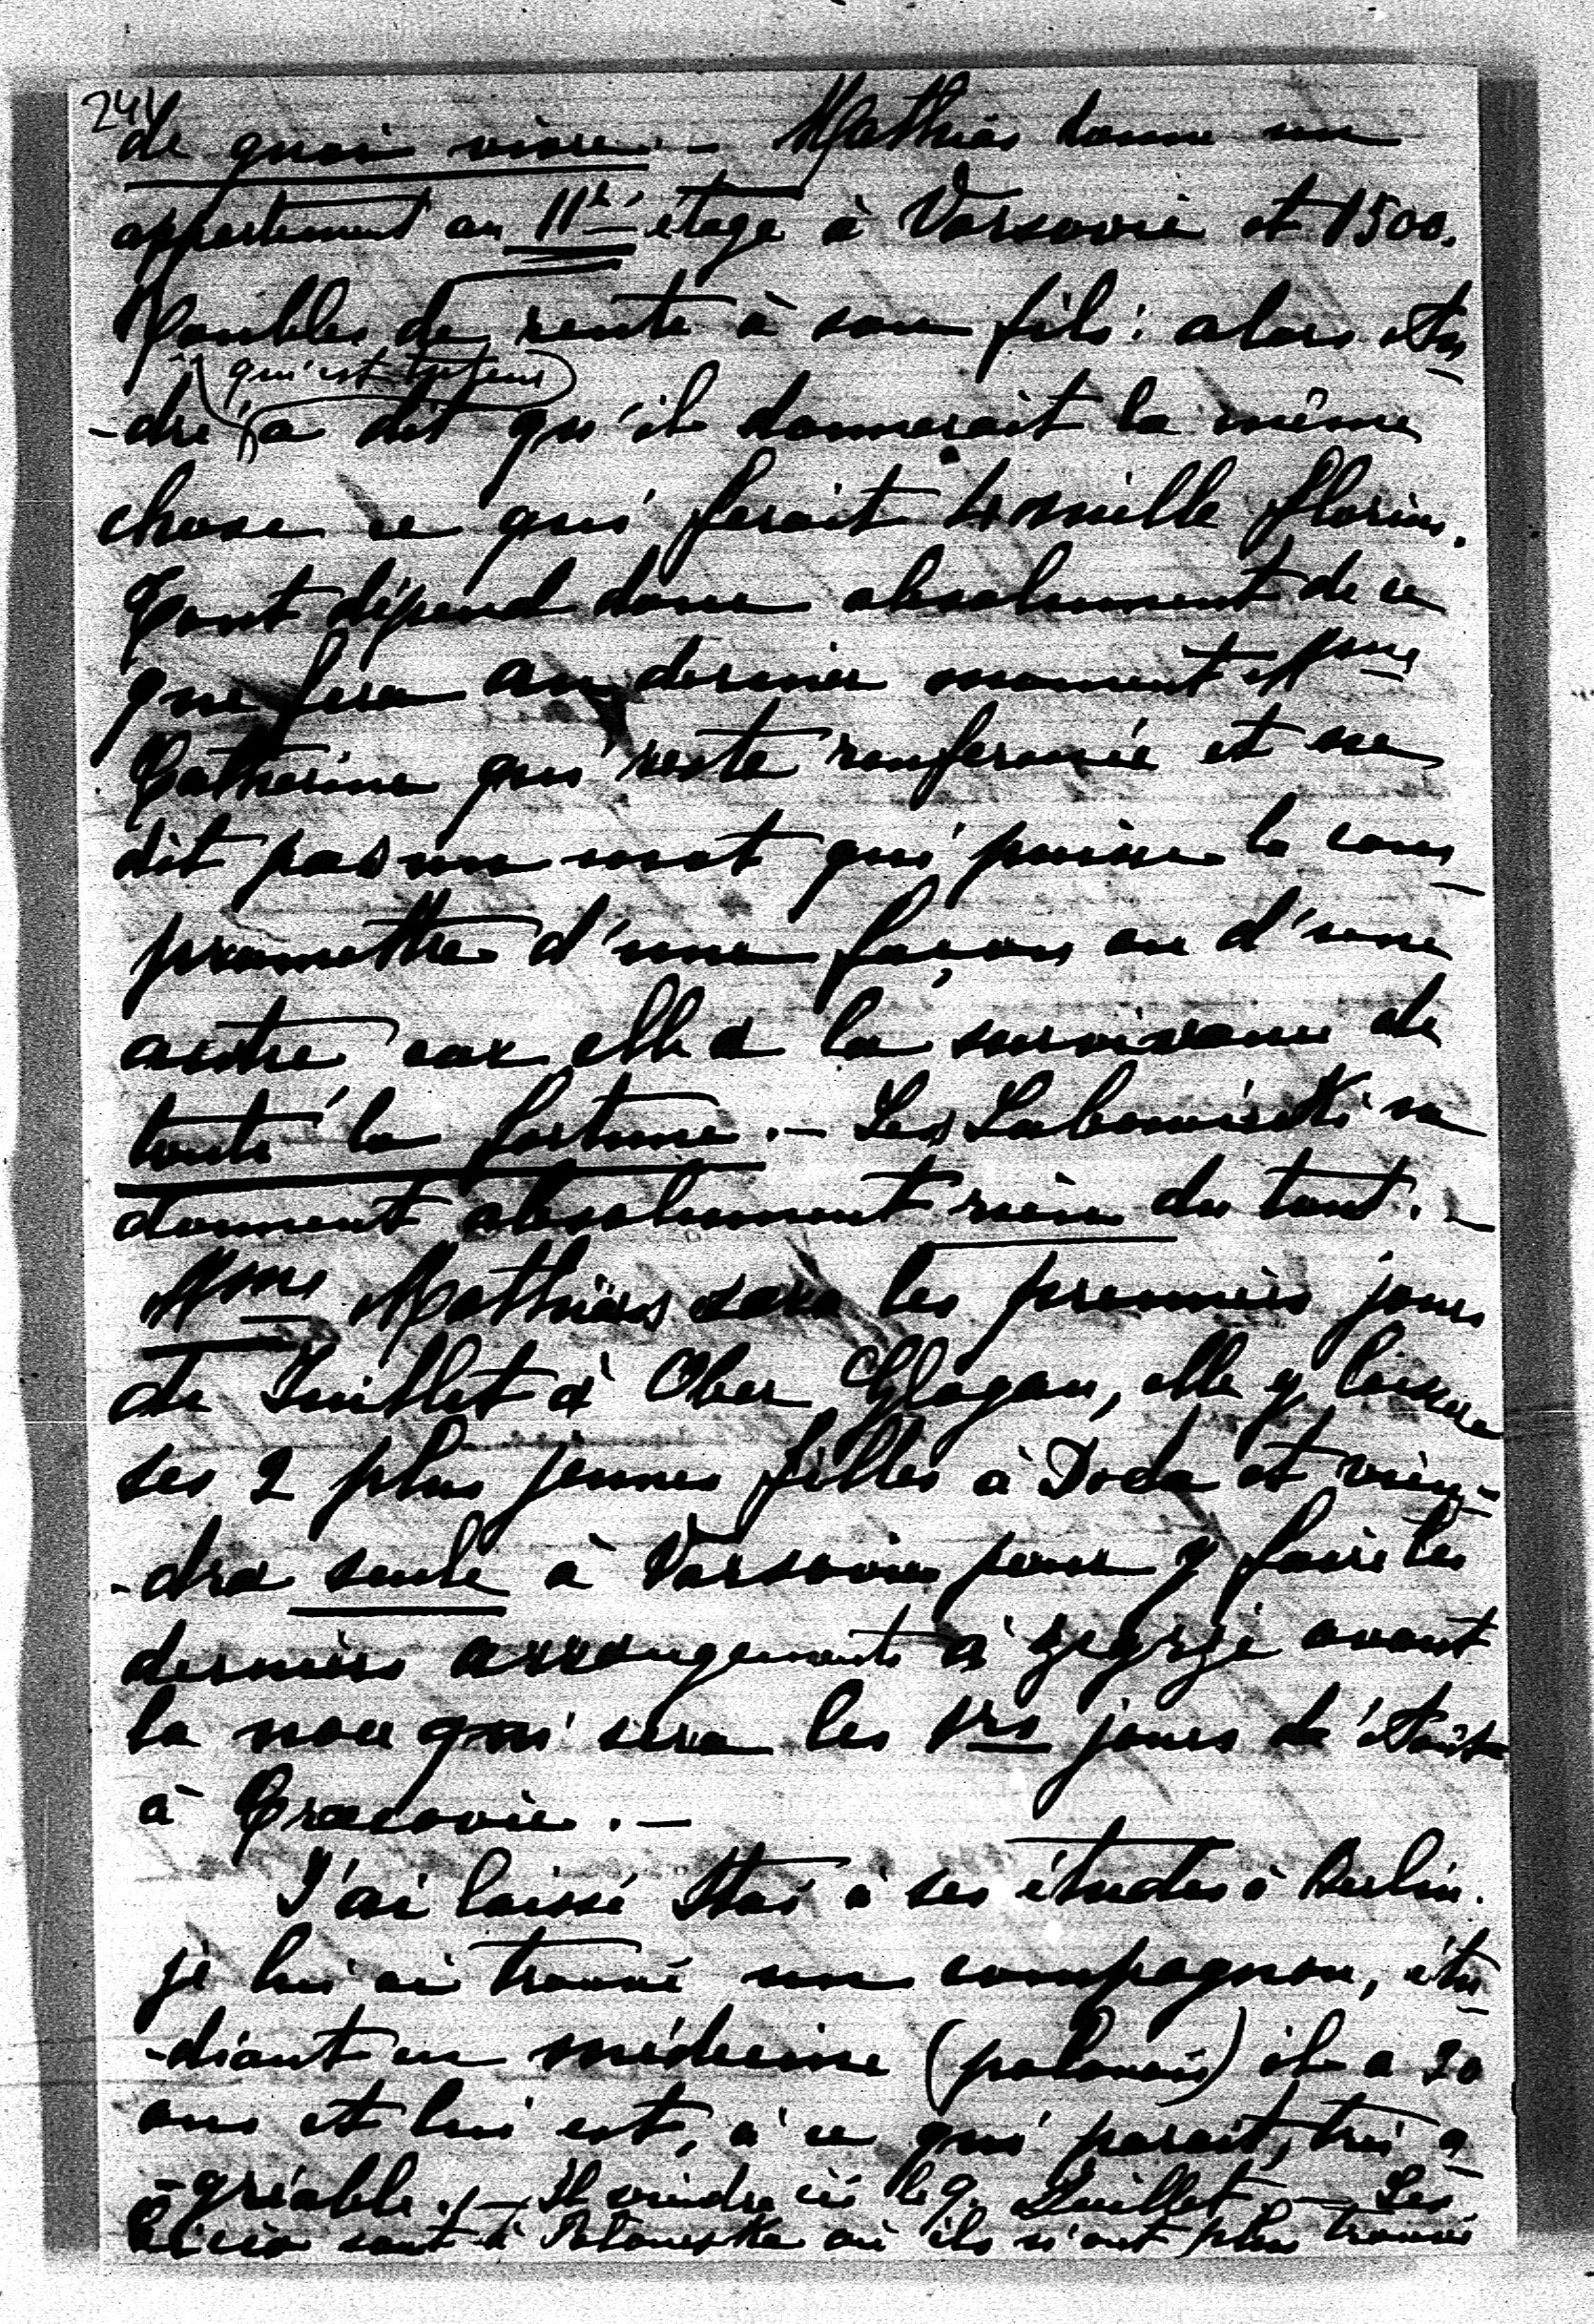 244
de quoi vivre. – Mathias donne un
appartement au IIᵈ étage à Varsovie et 1500.
Roubles de rente à son fils: alors An
-dré (qui est tuteur) a dit qu'il donnerait la même
chose ce qui ferait 4 mille florins.
Tout dépend donc absolument de ce
que fera au dernier moment Mme
Catherine qui reste renfermée et ne
dit pas un mot qui puisse la com
promettre d'une façon ou d'une
autre car elle a la survivance de
toute la fortune. – Les Lubowiecki ne
donnent absolument rien du tout. –
Mme Mathias sera les premiers jours
de Juillet à Ober Glogau, elle y laissera
ses 2 plus jeunes filles à Doda et vien-
-dra seule à Varsovie pour y faire les
derniers arrangements à Zegrze avant
la noce qui sera les 1rs jours d'Août
à Cracovie. –
J'ai laissé Stas à ses études à Berlin.
je lui ai trouvé un compagnon, étu
-diant en médecine (polonais) il a 20
ans et lui est, à ce qui parait, très a
-gréable. – Il viendra ici le 9. Juillet. – Les
sont à où ils n'ont plus trouvé